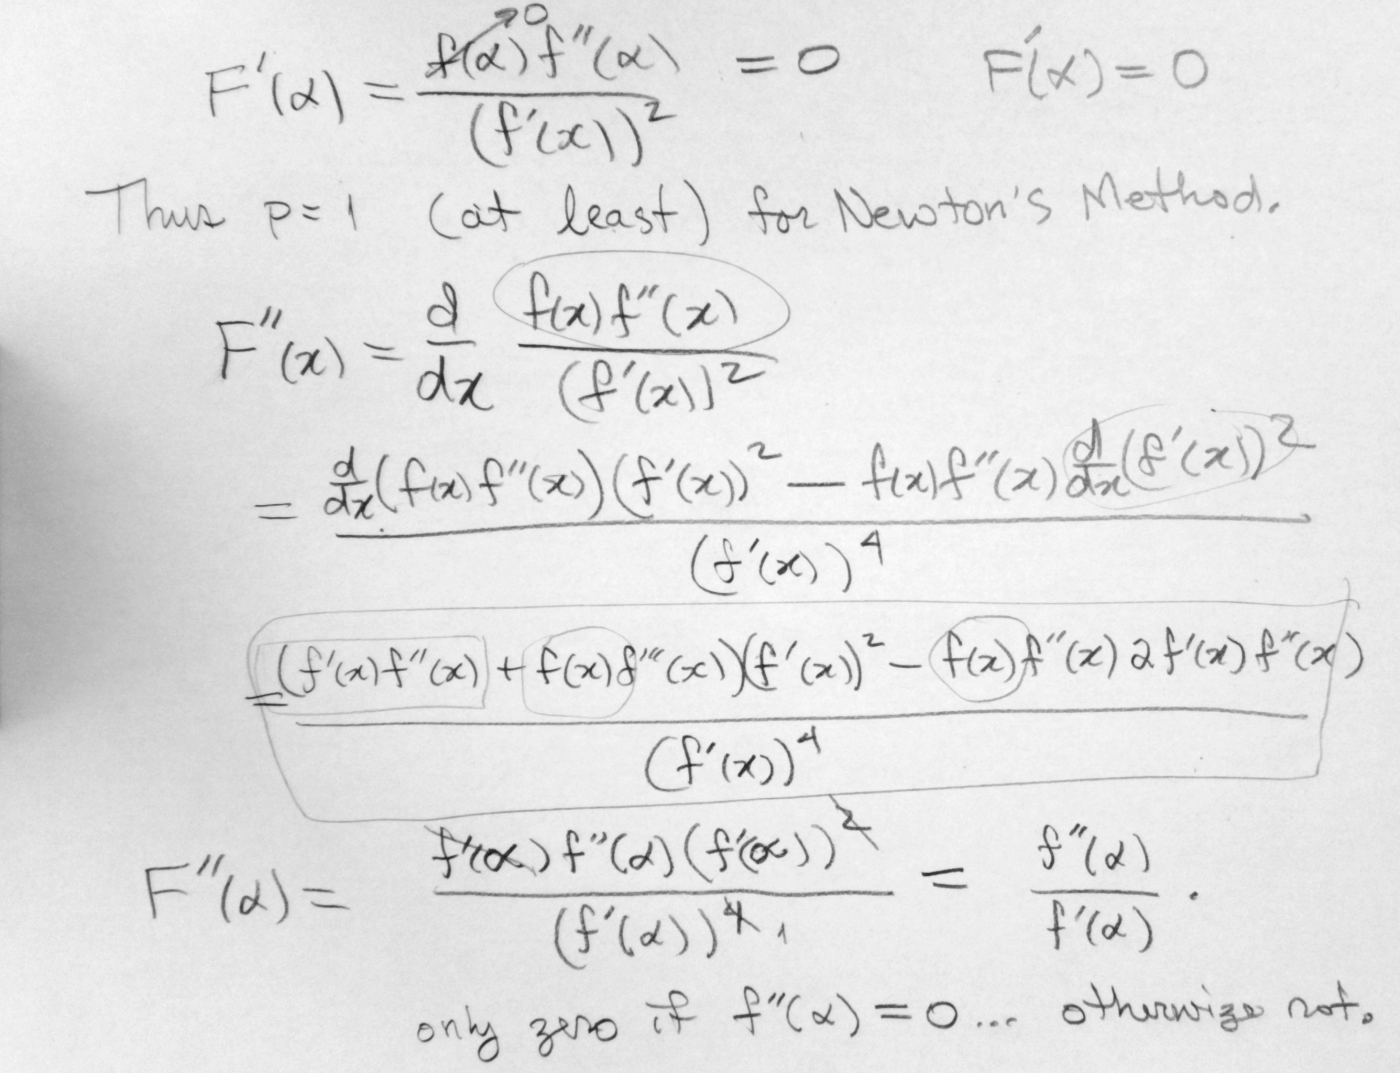 F'(α) = f(α)→0 f''(α) / (f'(x))² = 0 F'(α) = 0
Thus p = 1 (at least) for Newton's Method.
F''(x) = d/dx f(x) f''(x) / (f'(x))²
= d/dx (f(x) f''(x)) (f'(x))² — f(x) f''(x) d/dx (f'(x))² / (f'(x))⁴
= (f'(x) f''(x) + f(x) f'''(x)) (f'(x))² – f(x) f''(x) 2 f'(x) f''(x) / (f'(x))⁴
F''(α) = f'(α) f''(α) (f'(α))² / (f'(α))⁴ 1 = f''(α) / f'(α) .
only zero if f''(α) = 0 ... otherwize not.